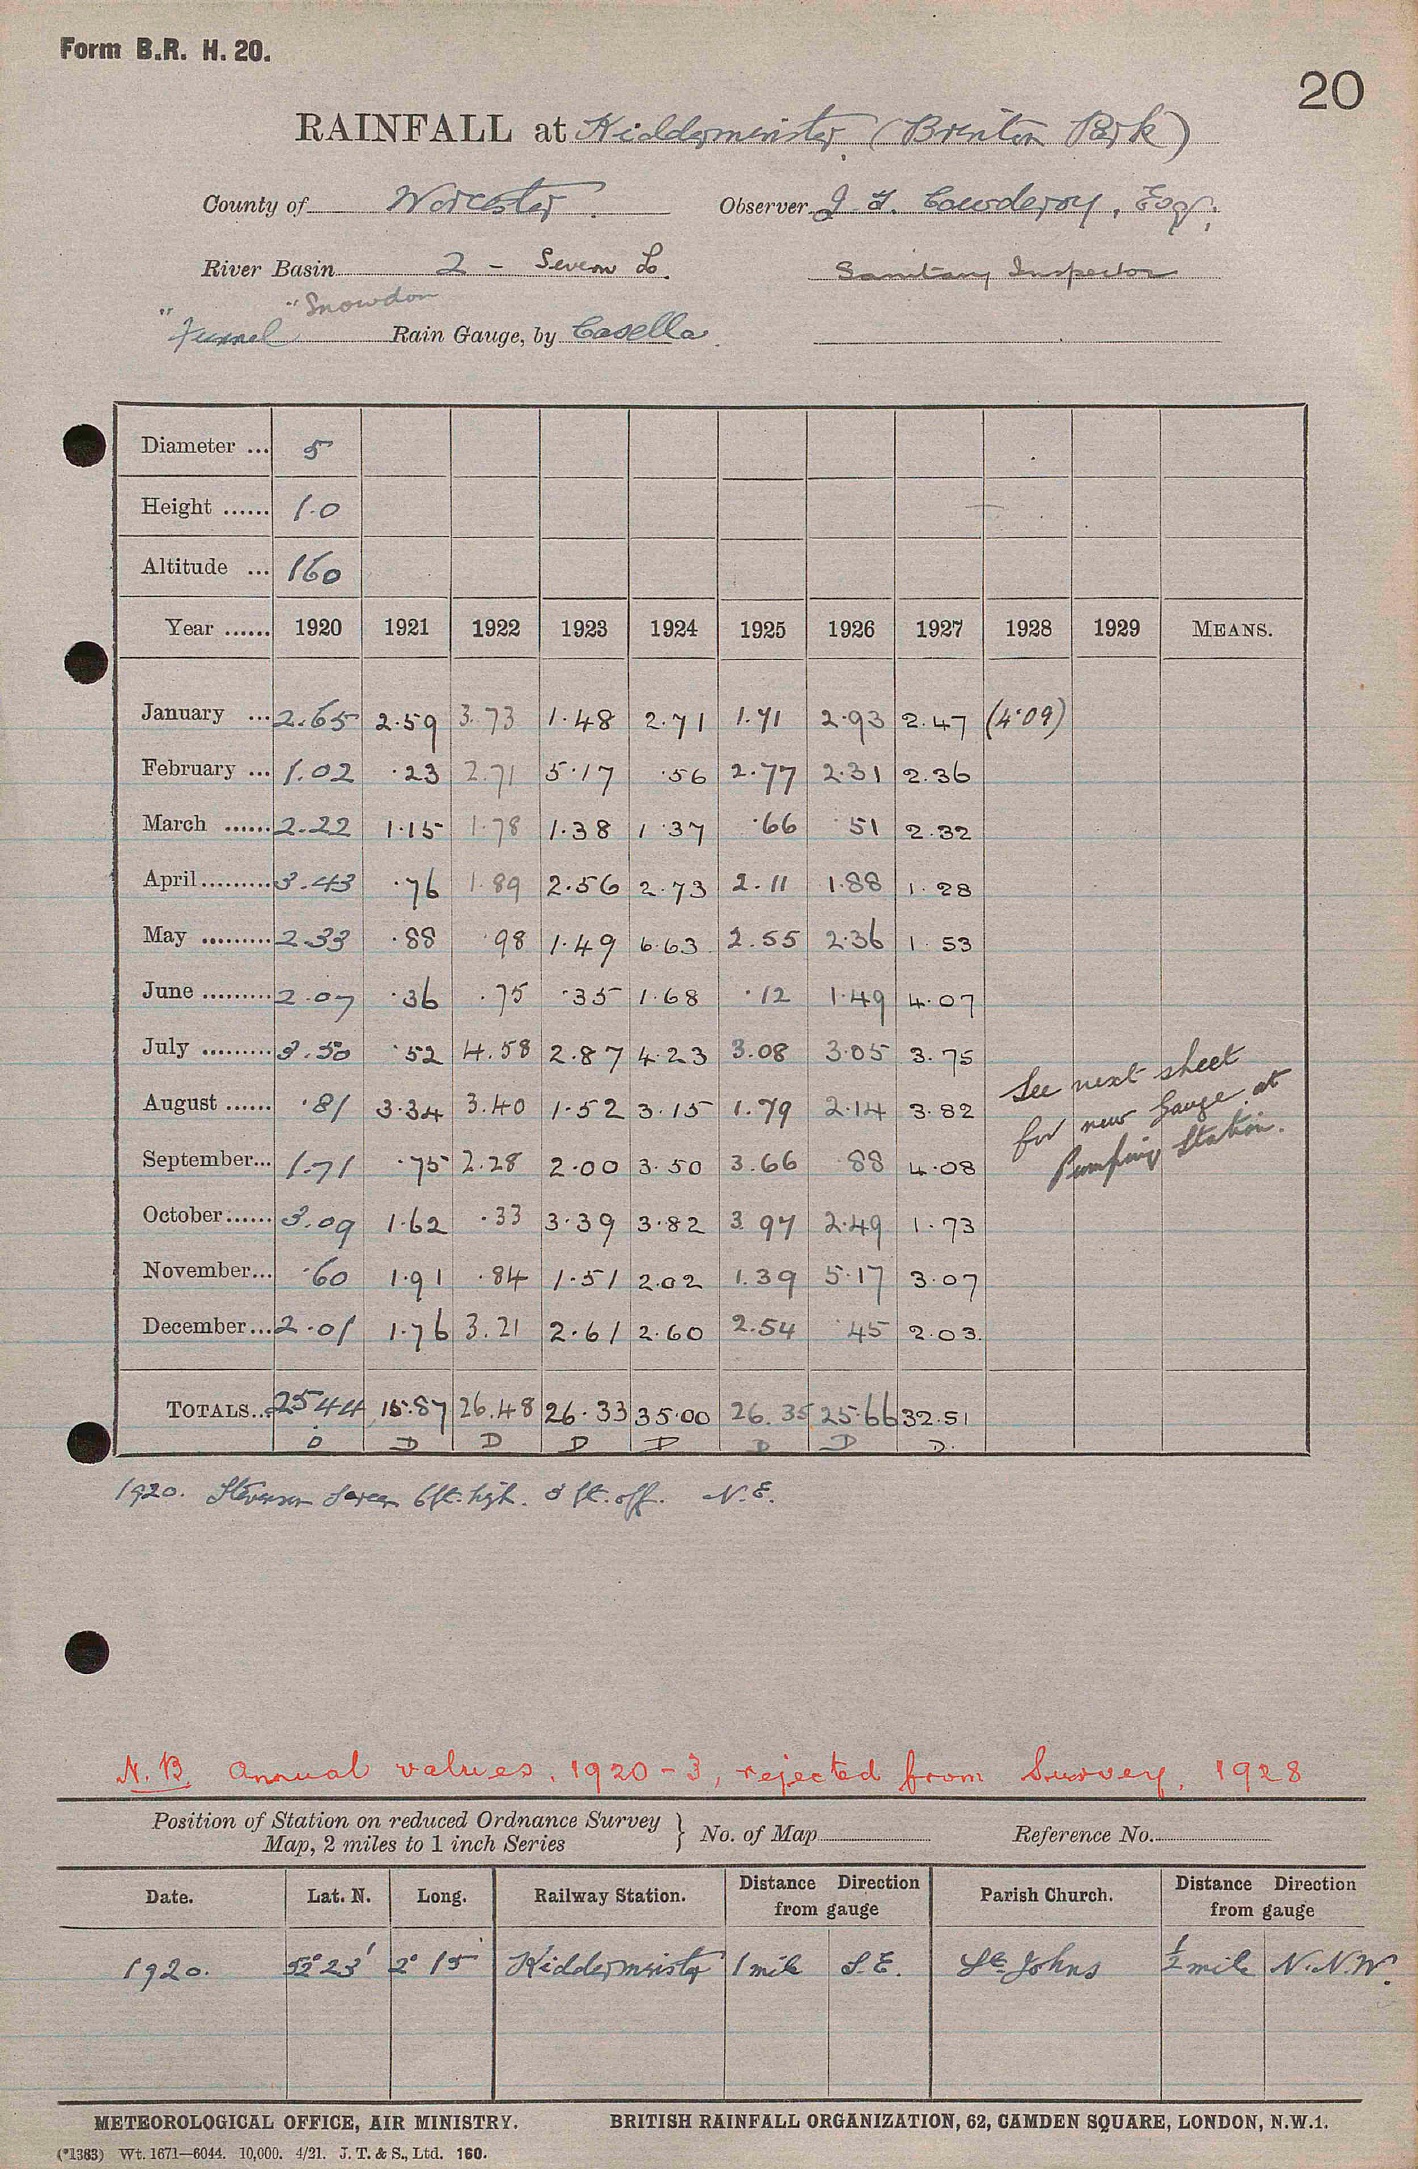 Form B.R. H. 20.
20
RAINFALL at Kidderminster (Brinton Park)
County of Worcester. Observer J. F. Cowderoy, Esq;
River Basin 2 - Severn L. Sanitary Inspector
"Snowdon
"Funnel Rain Gauge, by Casella.
Diameter ... 5
Height ...... 1.0
Altitude ... 160
Year ...... 1920 1921 1922 1923 1924 1925 1926 1927 1928 1929 MEANS.
January ... 2.65 2.59 3.73 1.48 2.71 1.71 2.93 2.47 (4.09)
February ... 1.02 .23 2.71 5.17 .56 2.77 2.31 2.36
March ...... 2.22 1.15 1.78 1.38 1.37 .66 .51 2.32
April ......... 3.43 .76 1.89 2.56 2.73 2.11 1.88 1.28
May ......... 2.33 .88 .98 1.49 6.63 2.55 2.36 1.53
June ......... 2.07 .36 .75 .35 1.68 .12 1.49 4.07
July ......... 3.50 .52 4.58 2.87 4.23 3.08 3.05 3.75
August ...... .81 3.34 3.40 1.52 3.15 1.79 2.14 3.82
September... 1.71 .75 2.28 2.00 3.50 3.66 .88 4.08
October ...... 3.09 1.62 .33 3.39 3.82 3.97 2.49 1.73
November... .60 1.91 .84 1.51 2.02 1.39 5.17 3.07
December... 2.01 1.76 3.21 2.61 2.60 2.54 .45 2.03
See next sheet
for new Gauge at
Pumping Station.
TOTALS... 25.44 15.87 26.48 26.33 35.00 26.35 25.66 32.51
D D D D D D D D.
1920. Stevenson Screen 6ft. high. 8 ft. off. N.E.
N.B. Annual values, 1920-3, rejected from Survey, 1928
Position of Station on reduced Ordnance Survey
Map, 2 miles to 1 inch Series } No. of Map Reference No.
Date. Lat. N. Long. Railway Station. Distance Direction from gauge Parish Church. Distance Direction from gauge
1920. 52° 23' 2° 15' Kidderminster 1 mile S.E. St. Johns ½ mile N.N.W.
METEOROLOGICAL OFFICE, AIR MINISTRY. BRITISH RAINFALL ORGANIZATION, 62, CAMDEN SQUARE, LONDON, N.W.1.
(*1383) Wt. 1671—6044. 10,000. 4/21. J. T. & S., Ltd. 160.